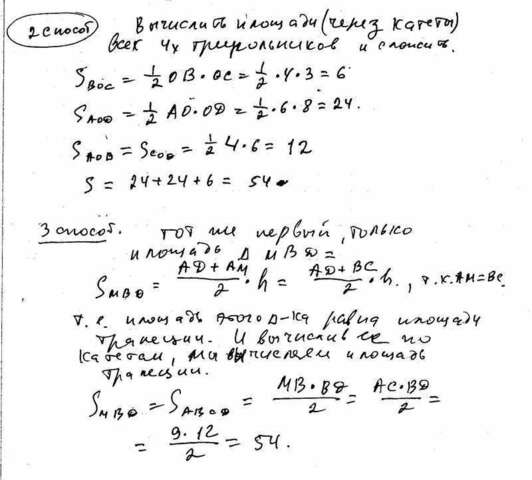 2 способ Вычислить площади (через катеты)
всех 4х треугольников и сложить.
S_BOC = 1/2 OB · OC = 1/2 · 4 · 3 = 6
S_AOD = 1/2 AO · OD = 1/2 · 6 · 8 = 24.
S_AOB = S_COD = 1/2 4 · 6 = 12
S = 24 + 24 + 6 = 54.
3 способ. тот же первый, только
площадь Δ MBD =
S_MBD = (AD + AM)/2 · h = (AD + BC)/2 · h., т.к. AM = BC
т. е. площадь этого Δ-ка равна площади
трапеции. И вычислив ее по
катетам, мы вычисляем площадь
трапеции.
S_MBD = S_ABCD = (MB · BD)/2 = (AC · BD)/2 =
= (9 · 12)/2 = 54.